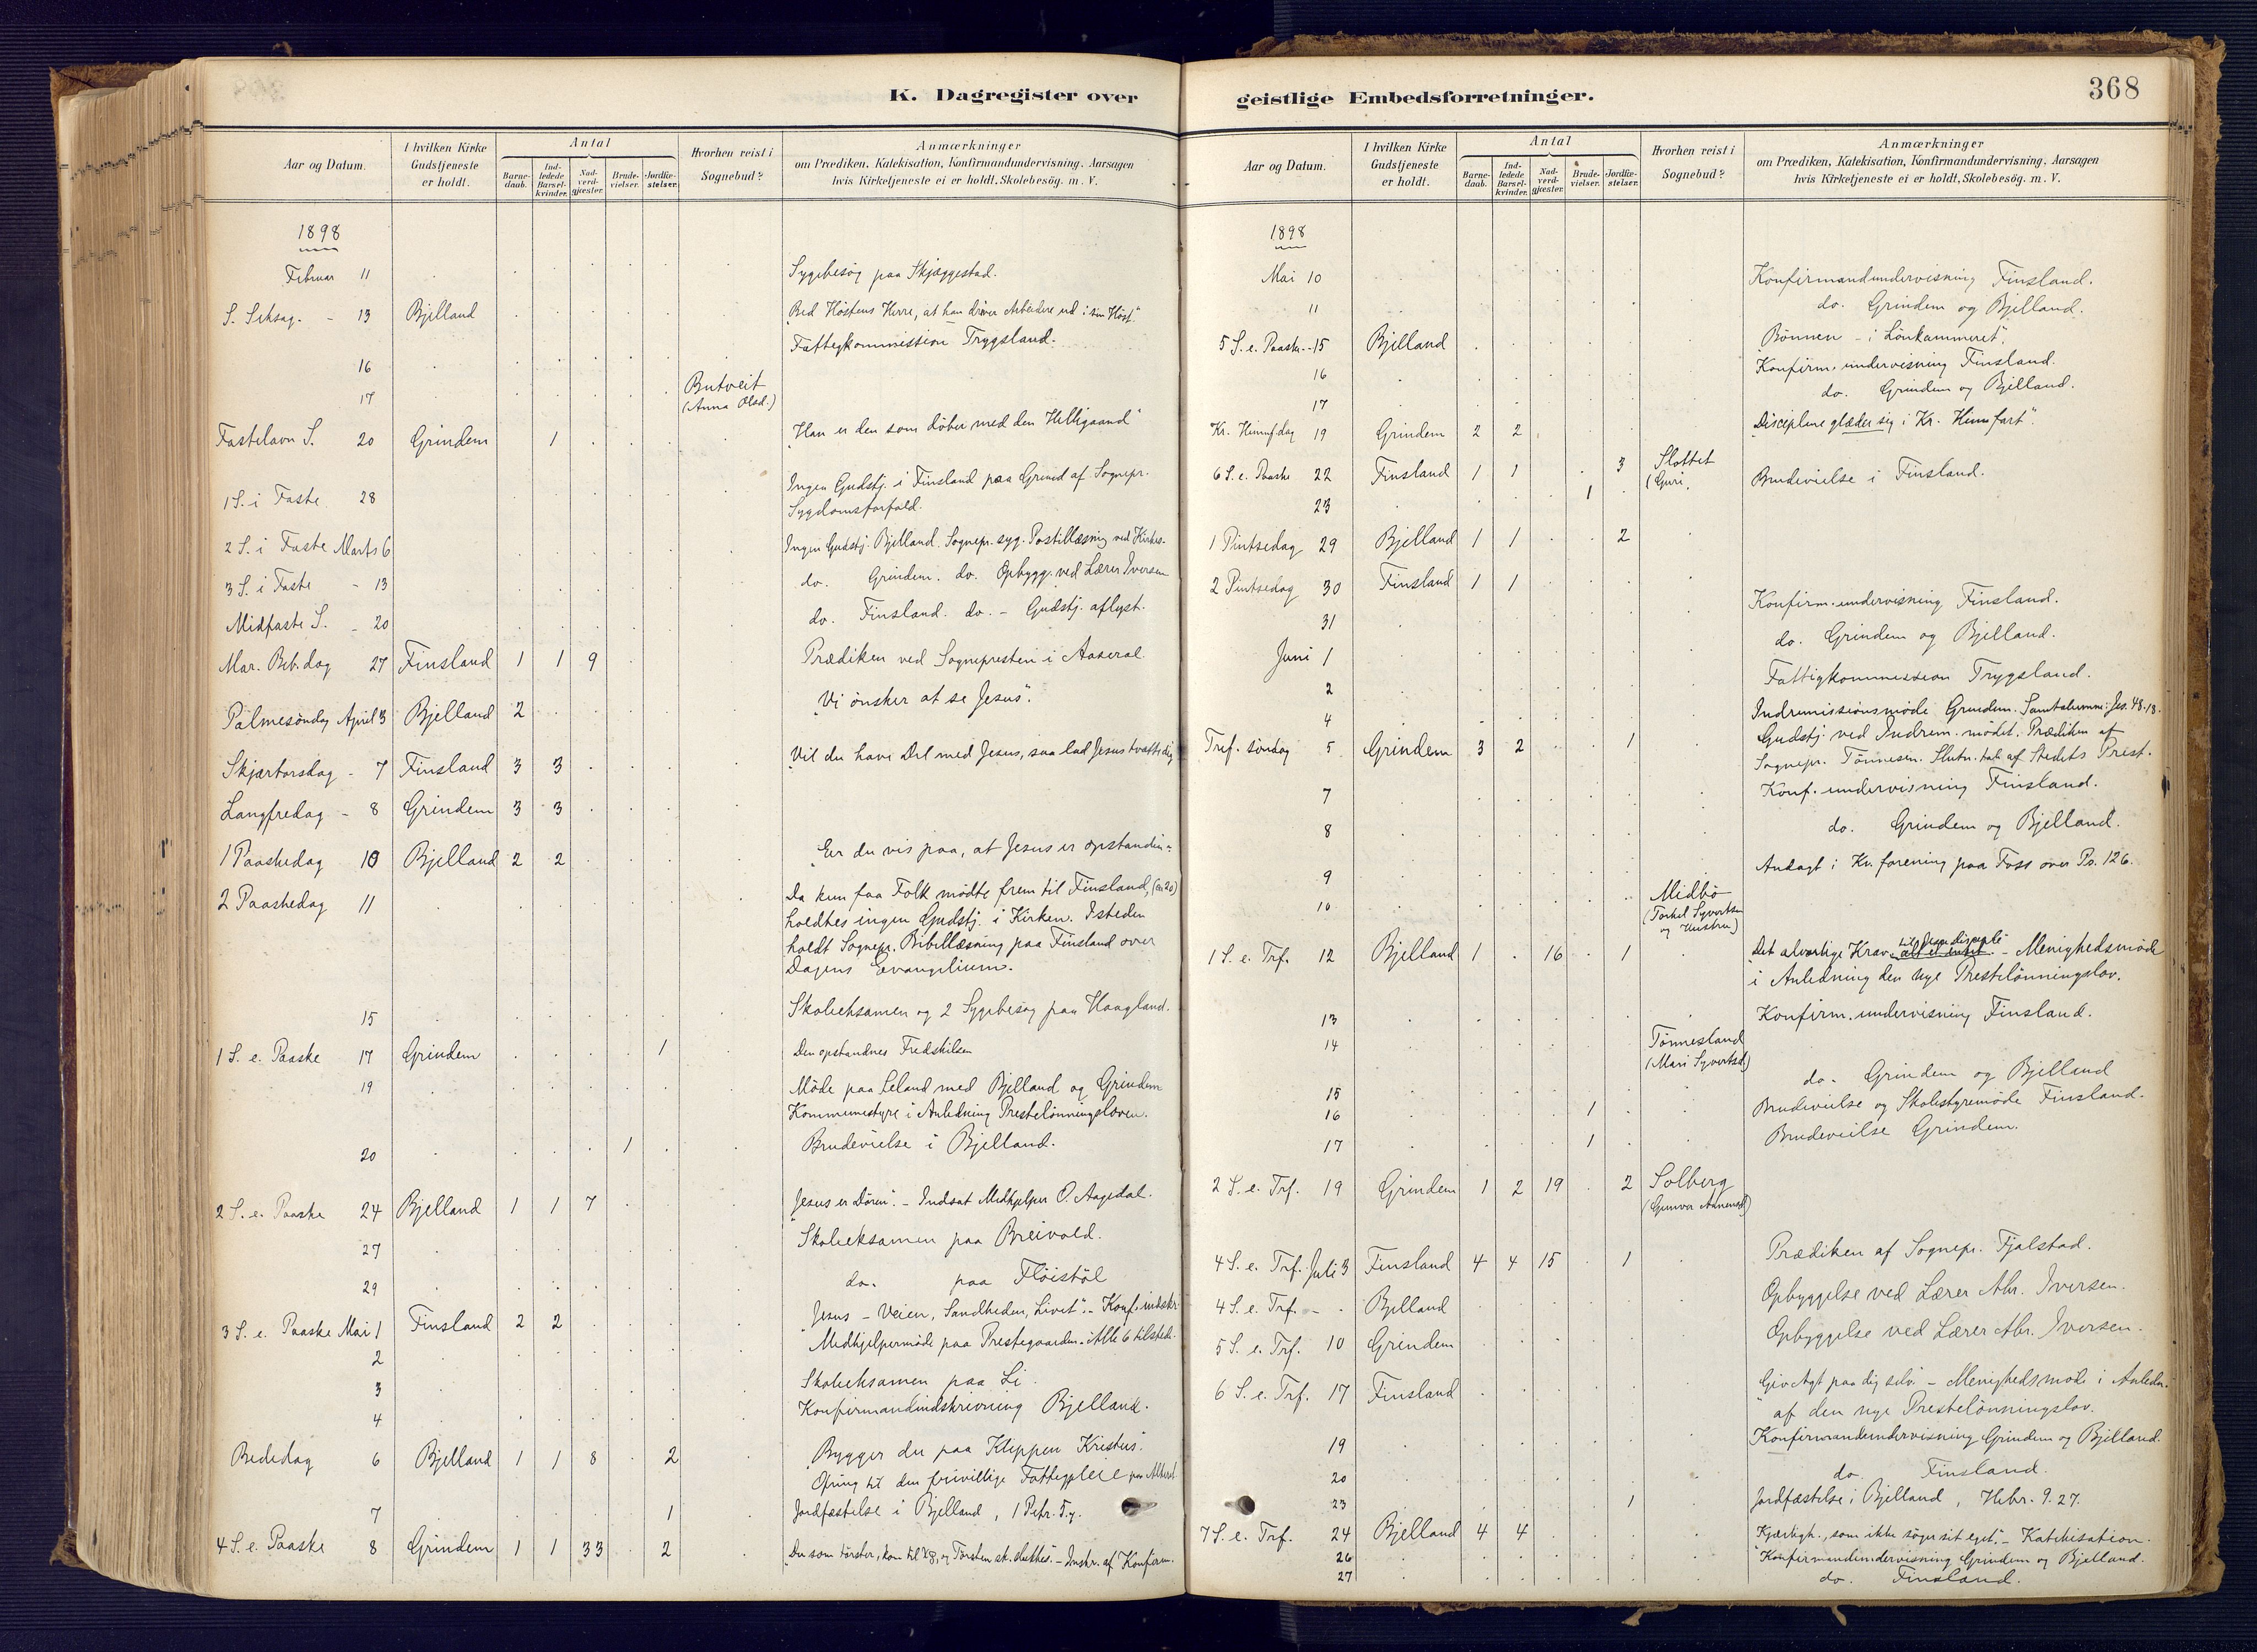 K. Dagregister over
Aar og Datum.
I hvilken Kirke Gudstjeneste er holdt.
Antal
Barne-daab.
Ind-ledede Barsel-kvinder.
Nad-verd-gjæster.
Brude-vielser.
Jordfæ-stelser.
Hvorhen reist i Sognebud?
Anmærkninger
om Prædiken, Katekisation, Konfirmandundervisning, Aarsagen
hvis Kirketjeneste ei er holdt, Skolebesög. m. V.
1898
Februar 11 Sygebesög paa Skjæggestad.
S. Seksag. - 13 Bjelland "Bed Höstens Herre, at han driver Arbeidere ud i sin Höst"
16 Fattigkommission Trygsland.
17 Butveit
(Anna Olsd.)
Fastelavn S. 20 Grindem 1 "Han er den som döber med den Helligaand"
1 S. i Faste 28 Ingen Gudstj. i Finsland paa Grund af Sognepr.
Sygdomsforfald.
2 S. i Faste Marts 6 Ingen Gudstj. Bjelland. Sognepr. syg. Postillæsning ved Kirkes.
3 S. i Faste - 13 do. Grindem. do. Opbygg. ved Lærer Iversen
Midfaste S. - 20 do. Finsland. do. - Gudstj. aflyst.
Mar. Beb. dag 27 Finsland 1 1 9 Prædiken ved Sognepresten i Aaseral
Palmesöndag April 3 Bjelland 2 "Vi önsker at se Jesus".
Skjærtorsdag - 7 Finsland 3 3 "Vil du have Del med Jesus, saa lad Jesus tvætte dig
Langfredag - 8 Grindem 3 3
1 Paaskedag 10 Bjelland 2 2 "Er du vis paa, at Jesus er opstanden"
2 Paaskedag 11 Da kun faa Folk mødte frem til Finsland, (ca 20)
holdtes ingen Gudstj. i Kirken. Isteden
holdt Sognepr. Bibellæsning paa Finsland over
Dagens Evangelium.
15 Skoleeksamen og 2 Sygebesög paa Haagland.
1 S. e. Paaske 17 Grindem 1 Den opstandnes Fredshilsen
19 Möde paa Leland med Bjelland og Grindem
Kommunestyre i Anledning Prestelönningsloven.
20 1 Brudevielse i Bjelland.
2 S. e. Paaske 24 Bjelland 1 1 7 "Jesus er Dören". - Indsat Medhjelper O. Aagedal.
27 Skoleeksamen paa Breivold.
29 do. paa Flöistöl
3 S. e. Paaske Mai 1 Finsland 2 2 "Jesus - Veien, Sandheden, Livet". - Konf. indskr.
2 Medhjelpermöde paa Prestegaarden. Alle 6 tilstede.
3 Skoleeksamen paa Li.
4 Konfirmandindskrivning Bjelland.
Bededag 6 Bjelland 1 1 8 2 "Bygger du paa Klippen Kristus".
Ofring til den frivillige Fattigpleie
7 1 Jordfæstelse i Bjelland, 1 Petr. 5.7.
4 S. e. Paaske 8 Grindem 1 1 33 2 "Du som törster, kom til og Törsten sk. slukkes". - Indskr. af Konfirm.
geistlige Embedsforretninger.
368
Aar og Datum.
I hvilken Kirke Gudstjeneste er holdt.
Antal
Barne-daab.
Ind-ledede Barsel-kvinder.
Nad-verd-gjæster.
Brude-vielser.
Jordfæ-stelser.
Hvorhen reist i Sognebud?
Anmærkninger
om Prædiken, Katekisation, Konfirmandundervisning, Aarsagen
hvis Kirketjeneste ei er holdt, Skolebesög. m. V.
1898
Mai 10 Konfirmandundervisning Finsland.
11 do. Grindem og Bjelland.
5 S. e. Paaske - 15 Bjelland "Bönnen - i Lönkammeret".
16 Konfirm. undervisning Finsland.
17 do. Grindem og Bjelland.
Kr. Himmf. dag 19 Grindem 2 2 "Disciplene glæder sig i Kr. Himmfart".
6 S. e. Paaske 22 Finsland 1 1 3 Slottet
(Guri.
23 1 Brudevielse i Finsland.
1 Pintsedag 29 Bjelland 1 1 2
2 Pintsedag 30 Finsland 1 1
31 Konfirm. undervisning Finsland.
Juni 1 do. Grindem og Bjelland.
2 Fattigkommission Trygsland.
4 Indremissionsmöde Grindem. Samtaleemne: Jes. 48.18.
Tref. söndag 5 Grindem 3 2 1 Gudstj. ved Indrem. mödet. Prædiken af
Sognepr. Tönnesen. Slutn. tale af Stedets Prest.
7 Konf. undervisning Finsland.
8 do. Grindem og Bjelland.
9 Andagt i Kv. forening paa Foss over Ps. 126.
10 Midbö
(Torkel Syvertsen
og Hustru)
1 S. e. Trf. 12 Bjelland 1 16 1 Det alvorlige Krav til Jesu disciple - Menighedsmöde
i Anledning den nye Prestelönningslov.
13 Konfirm. undervisning Finsland.
14 Tönnesland
(Mari Syvertsd.)
15 do. Grindem og Bjelland
16 1 Brudevielse og Skolestyremöde Finsland.
17 1 Brudevielse Grindem.
2 S. e. Trf. 19 Grindem 1 2 19 2 Solberg
(Gunvor
4 S. e. Trf. Juli 3 Finsland 4 4 15 1 Prædiken af Sognepr. Fjalstad.
4 S. e. Trf. - Bjelland Opbyggelse ved Lærer Abr. Iversen.
5 S. e. Trf. 10 Grindem Opbyggelse ved Lærer Abr. Iversen.
6 S. e. Trf. 17 Finsland "Giv Agt paa dig selv. - Menighedsmöde i Anledn.
af den nye Prestelönningslov.
19 Konfirmandundervisning Grindem og Bjelland.
20 do. Finsland.
23 1 Jordfæstelse i Bjelland, Hebr. 9.27.
7 S. e. Trf. 24 Bjelland 4 4 "Kjærligh., som ikke söger sit eget". - Katekisation.
26 Konfirmandundervisning Grindem og Bjelland.
27 do. Finsland.